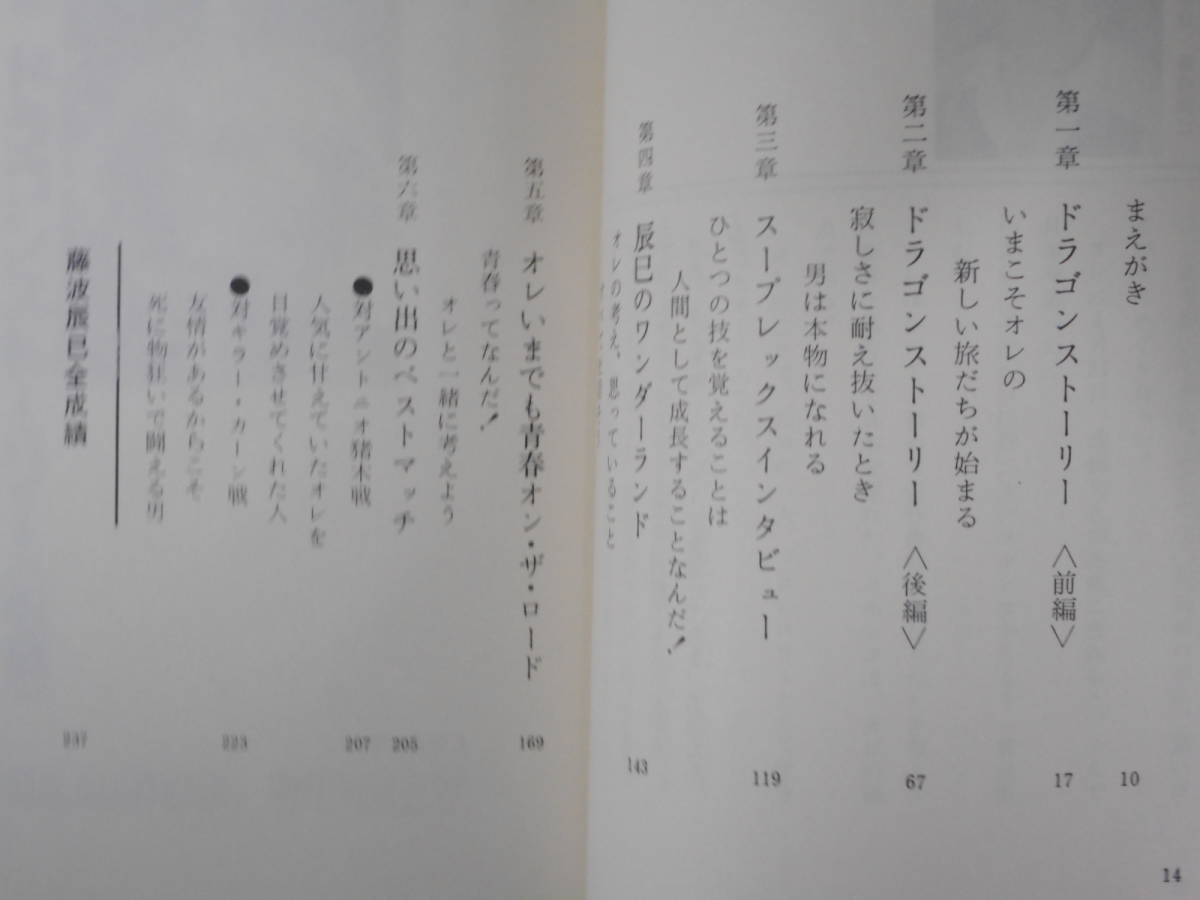 まえがき
10
第一章 ドラゴンストーリー〈前編〉
17
いまこそオレの
新しい旅だちが始まる
第二章 ドラゴンストーリー〈後編〉
67
寂しさに耐え抜いたとき
男は本物になれる
第三章 スープレックスインタビュー
119
ひとつの技を覚えることは
人間として成長することなんだ!
第四章 辰巳のワンダーランド
143
オレの考え、思っていること
14
第五章 オレいまでも青春オン・ザ・ロード
169
青春ってなんだ!
オレと一緒に考えよう
第六章 思い出のベストマッチ
205
●対アントニオ猪木戦
207
人気に甘えていたオレを
目覚めさせてくれた人
●対キラー・カーン戦
223
友情があるからこそ
死に物狂いで闘える男
藤波辰巳全成績
237